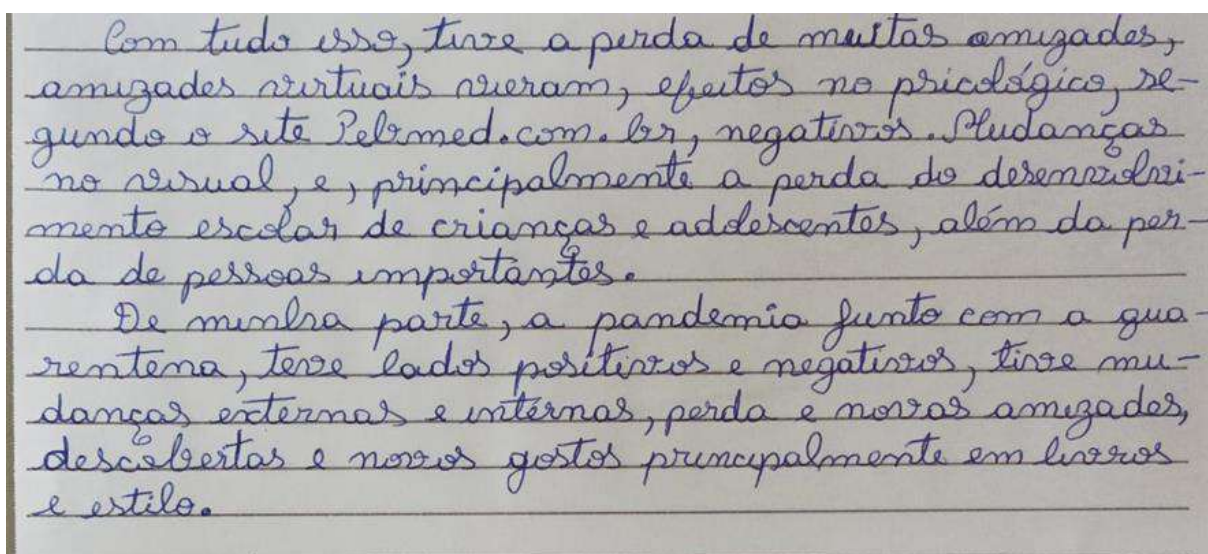 Com tudo isso, tive a perda de muitas amizades,
amizades virtuais vieram, efeitos no psicológico, se-
gundo o site Pebmed.com.br, negativos. Mudanças
no visual, e, principalmente a perda do desenvolvi-
mento escolar de crianças e adolescentes, além da per-
da de pessoas importantes.
De minha parte, a pandemia junto com a qua-
rentena, teve lados positivos e negativos, tive mu-
danças externas e internas, perda e novas amizades,
descobertas e novos gostos principalmente em livros
e estilo.